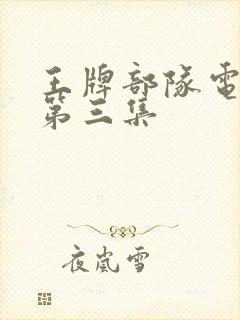 王牌部隊電
第三集
夜嵐雪